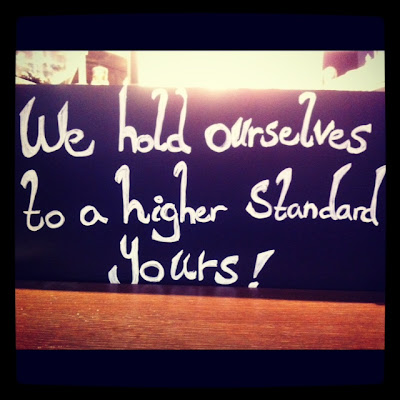 We hold ourselves
to a higher Standard
Yours!